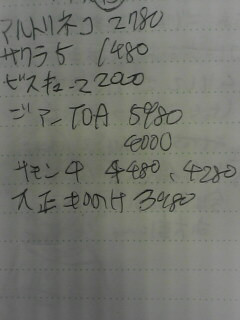 アルトリネコ 2780
サクラ5 1480
ビスキュー2 2200
ジアン TOA 5980
4000
サモン4 4480、4280
大正もののけ 3980